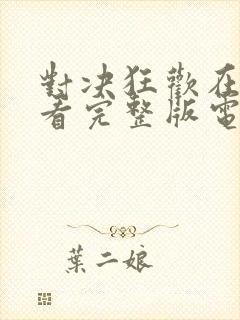 對決狂歡在
看完整版電
葉二娘